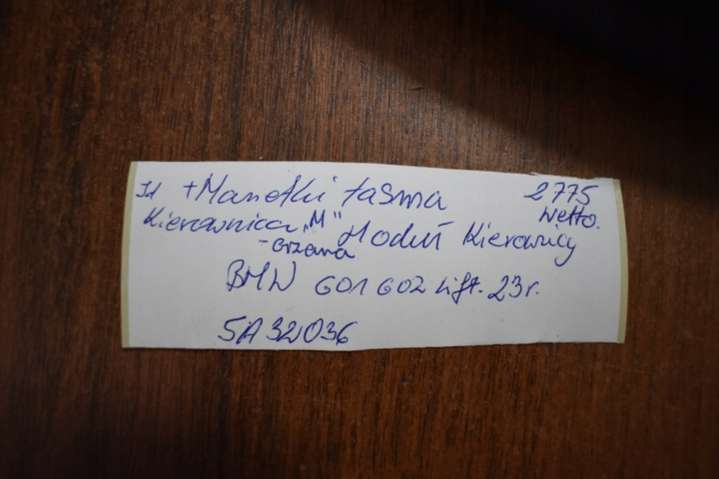 +Manetki taśma 2775
Kierownica „M" Moduł Kierowcy Netto.
- Grzana
BMW G01 G02 Lift. 23r.
5A32036